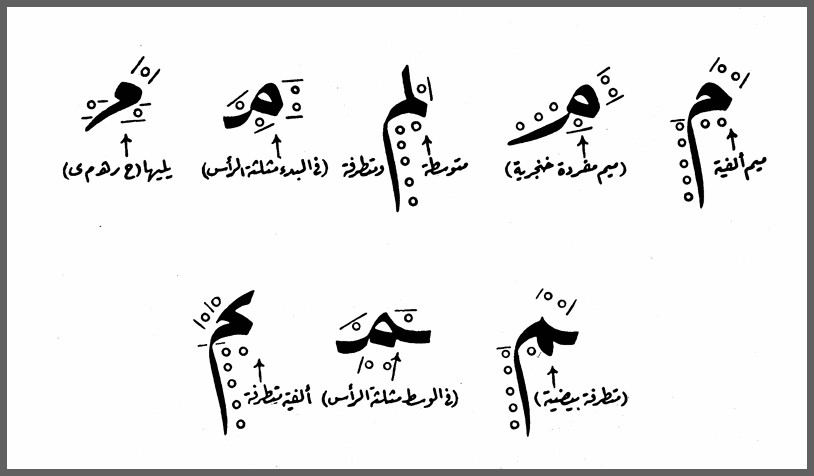 م م لم مـ مـ
ميم ألفية (ميم مفردة خنجرية) متوسطة ومتطرفة (في البدء مثلثة الرأس) يليها (ح ر هـ م ى)
ـم ـمـ ـم
(متطرفة بيضية) (في الوسط مثلثة الرأس) ألفية متطرفة